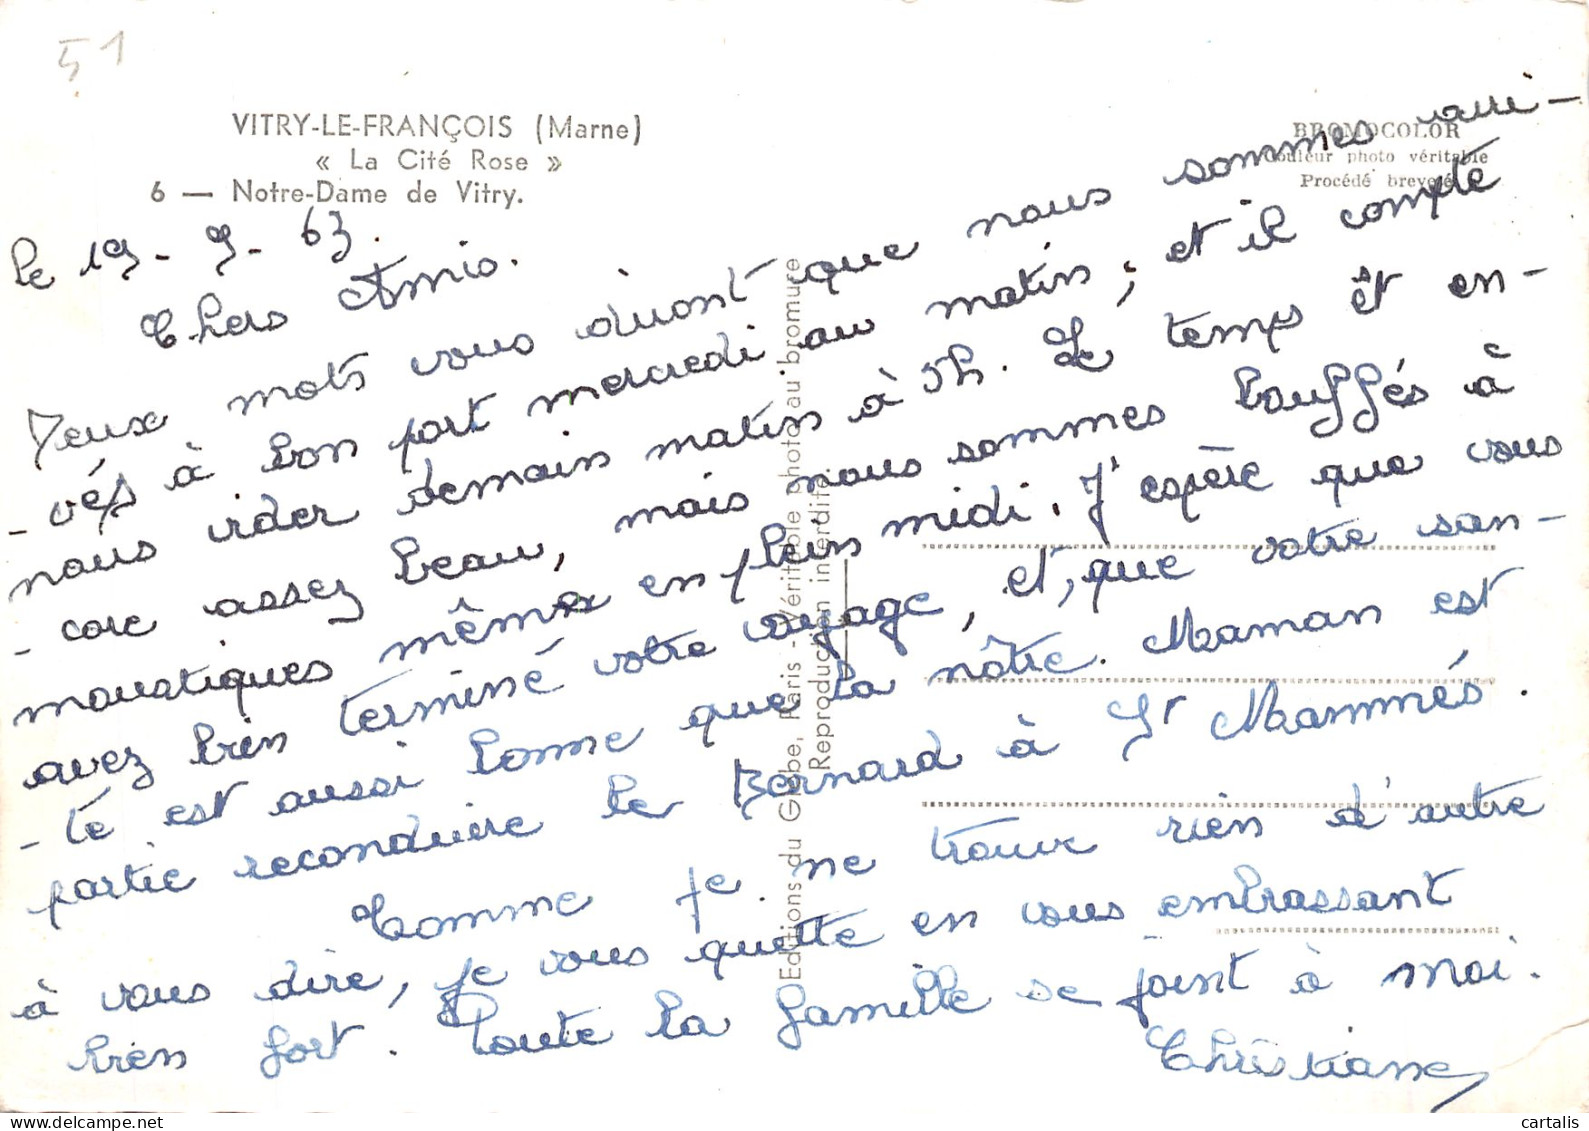 51
VITRY-LE-FRANÇOIS (Marne)
« La Cité Rose »
6 — Notre-Dame de Vitry.
BROMOCOLOR
Couleur photo véritable
Procédé breveté
Editions du Globe, Paris - Véritable photo au bromure
Reproduction interdite
le 19-9-63.
Chers Amis.
Deux mots vous disant que nous sommes arri-
-vés à bon port mercredi au matin, et il compte
nous vider demain matin à 5h. Le temps êt en-
-core assez beau, mais nous sommes bouffés à
moustiques même en plein midi. J'espère que vous
avez bien terminé votre voyage, et, que votre san-
-té est aussi bonne que la nôtre. Maman est
partie reconduire le Bernard à St Mammés.
Comme je ne trouve rien d'autre
à vous dire, je vous quitte en vous embrassant
bien fort. Toute la famille se joint à moi.
Christiane
cartalis